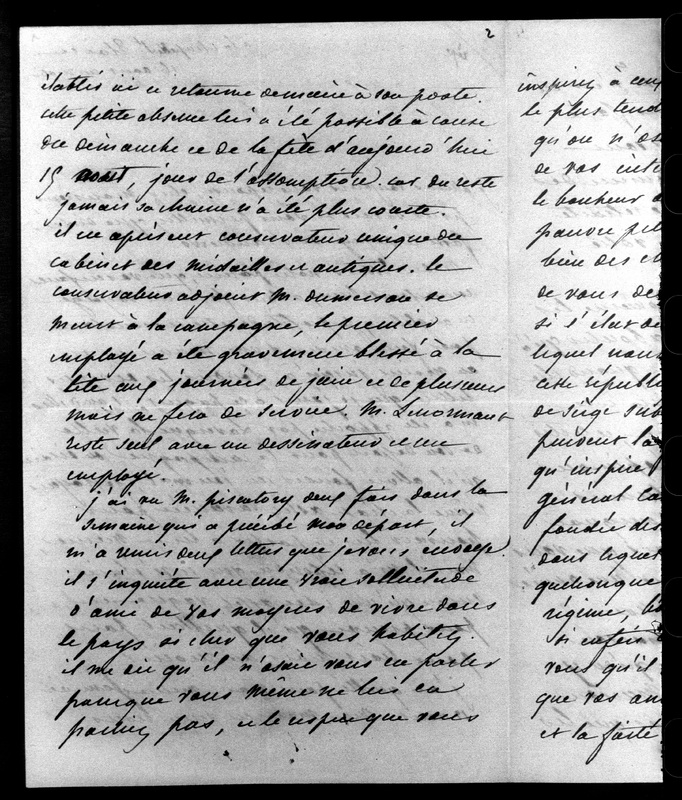 2
établis ici et retourne demain à son poste.
cette petite absence lui a été possible à cause
du dimanche et de la fête d'aujourd'hui
15 aout, jour de l'assomption. car du reste
jamais sa chaine n'a été plus courte.
il est à présent conservateur unique du
cabinet des médailles et antiques. le
conservateur adjoint M. dumersan se
meurt à la campagne, le premier
employé a été gravement blessé à la
tête aux journées de juin et de plusieurs
mois ne fera de service. M. Lenormant
reste seul avec un dessinateur et un
employé.
j'ai vu M. piscatory deux fois dans la
semaine qui a précédé mon départ, il
m'a remis deux lettres que je vous envoye.
il s'inquiète avec une vraie sollicitude
d'ami de vos moyens de vivre dans
le pays si cher que vous habitez.
il me dit qu'il n'osait vous en parler
parce que vous même ne lui en
parliez pas, et le respect que vous
inspirez à ceux
le plus tend
qu'on n'os
de vos inté
le bonheur d
pauvre pet
bien des ch
de vous de
si l'état de
lequel nous
cette républi
de siège sub
pouvoir la
qu'inspire
général Ca
fondée des
dans lequel
quelconque
régime, bo
si enfin
vous qu'il
que vos am
et la fierté